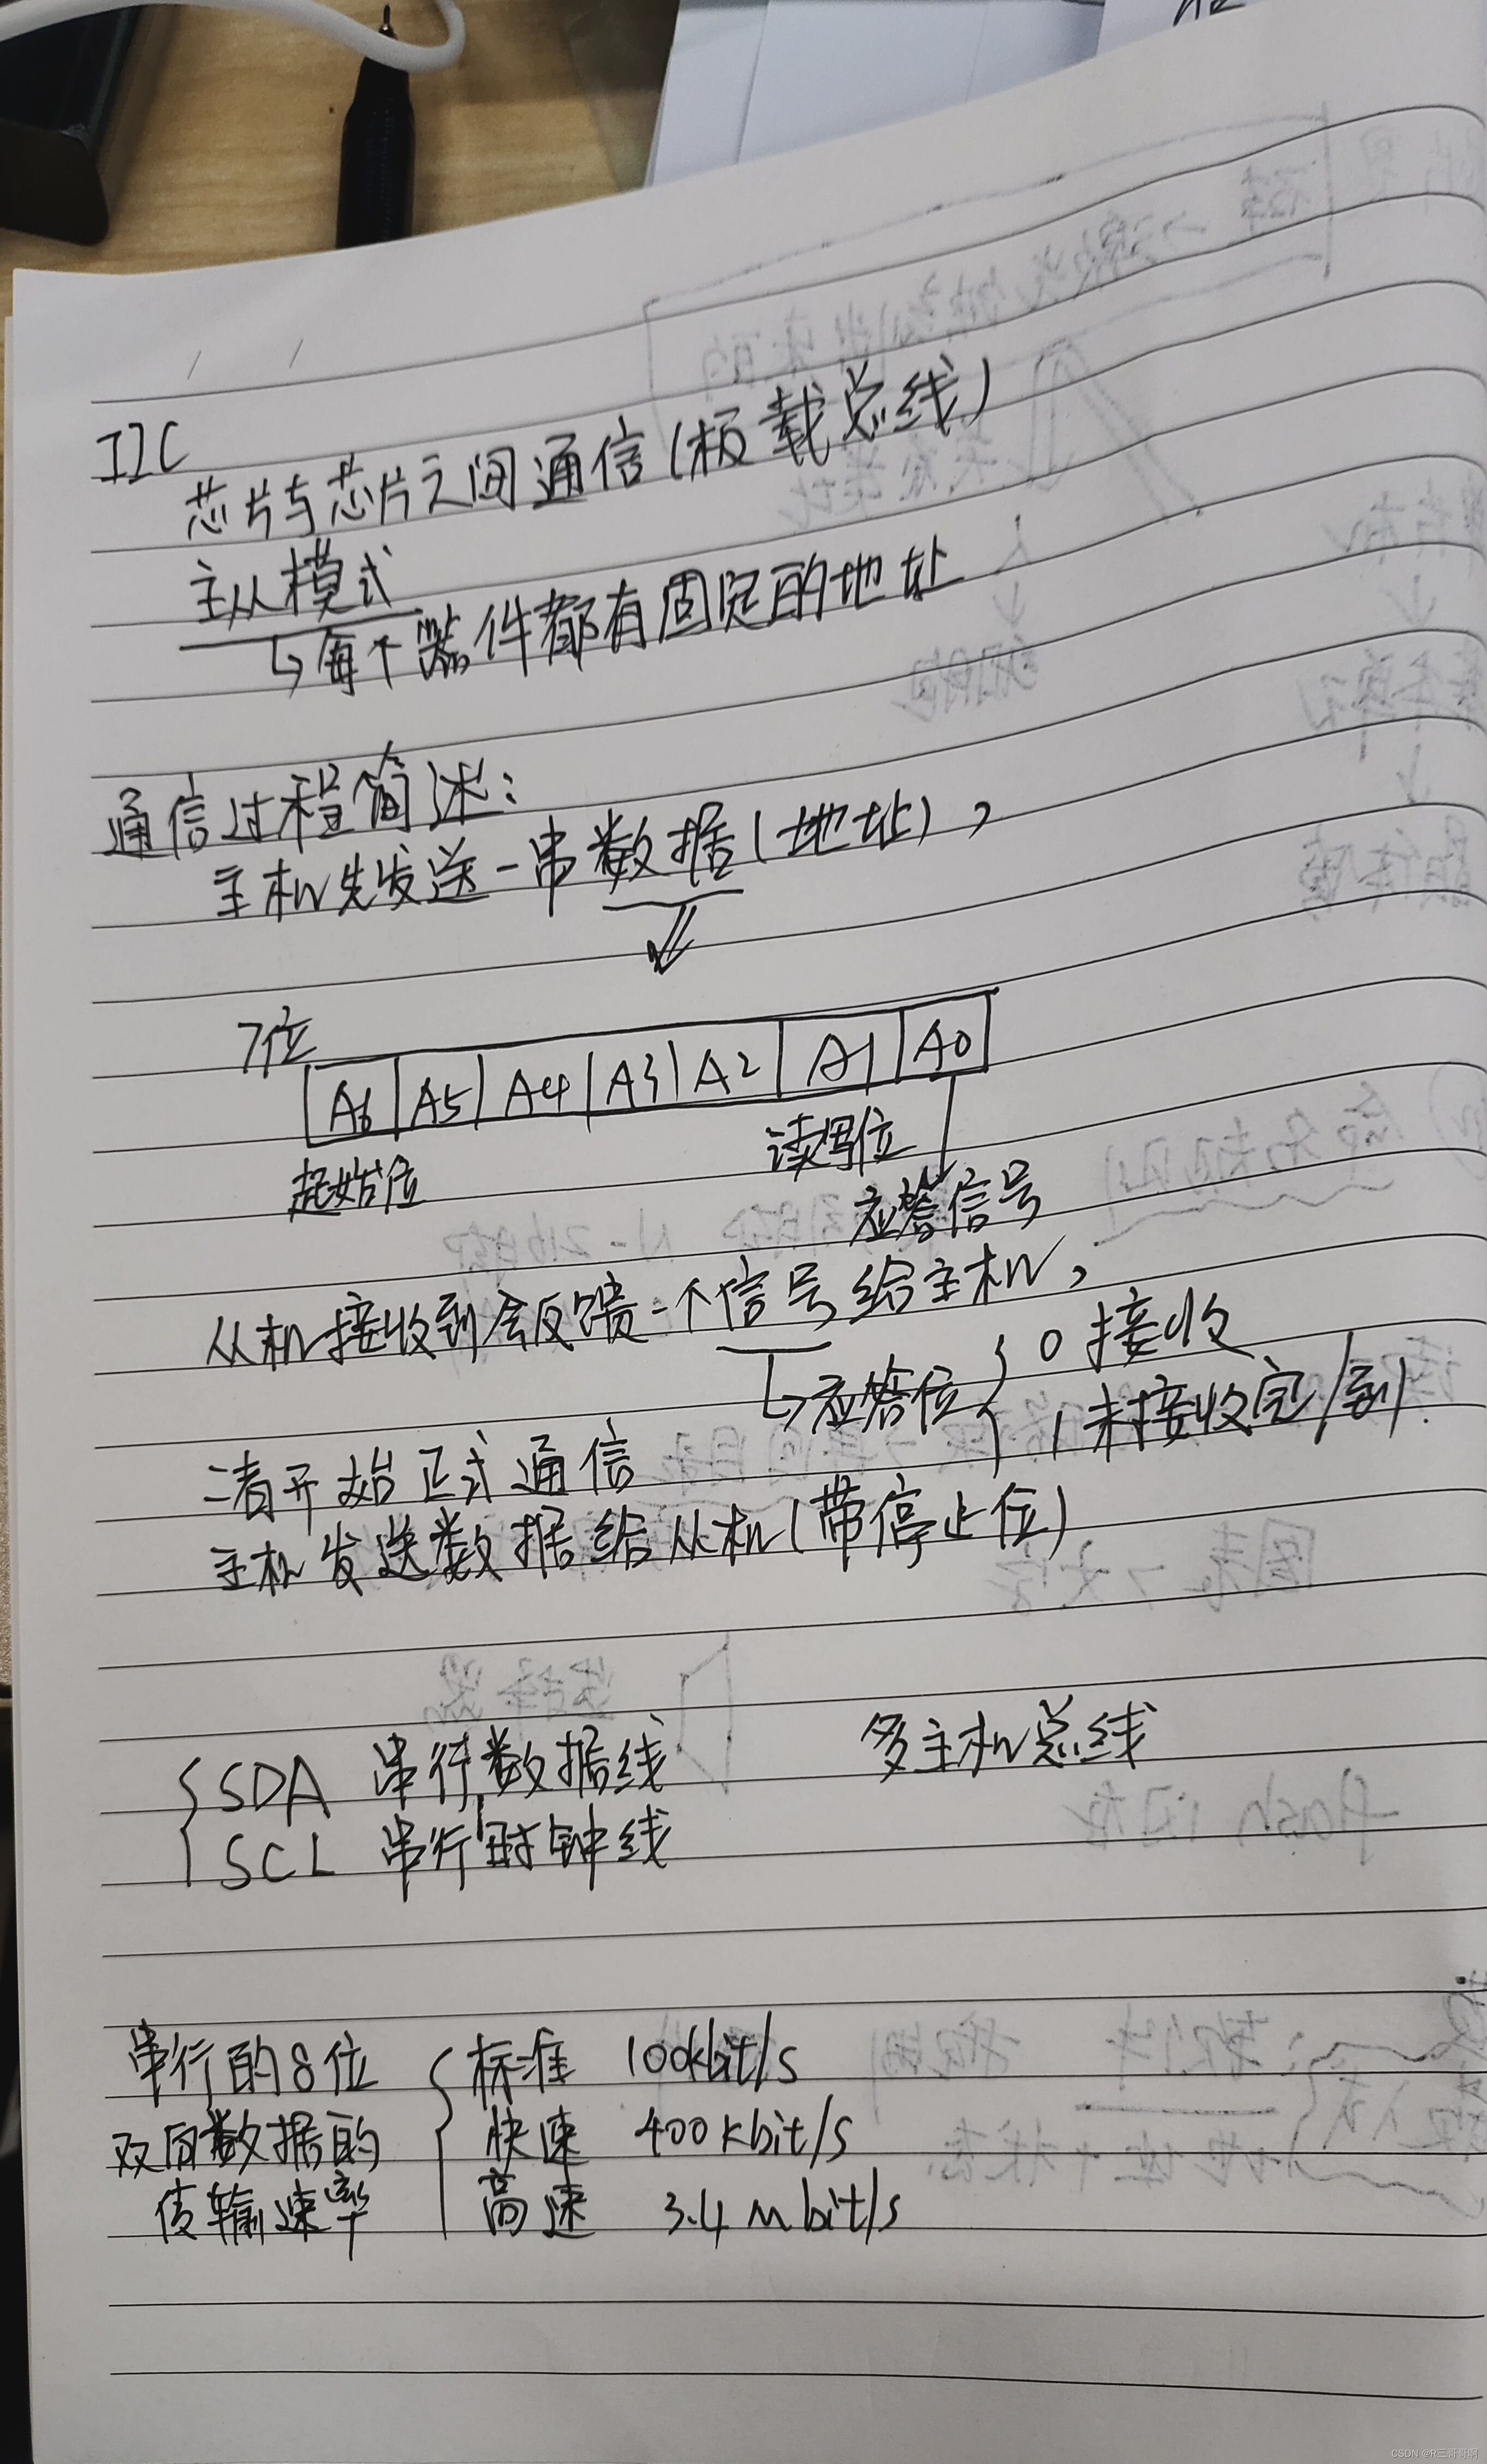 I2C
芯片与芯片之间通信(板载总线)
主从模式
↳每个器件都有固定的地址
通信过程简述:
主机先发送一串数据(地址),
7位
A6 A5 A4 A3 A2 A1 A0
起始位 读写位
应答信号
从机接收到会反馈一个信号给主机,
↳应答位 { 0 接收
1 未接收完/到
二者开始正式通信
主机发送数据给从机(带停止位)
多主机总线
SDA 串行数据线
SCL 串行时钟线
串行的8位 标准 100kbit/s
双向数据的 快速 400kbit/s
传输速率 高速 3.4Mbit/s
CSDN @R三哥哥啊